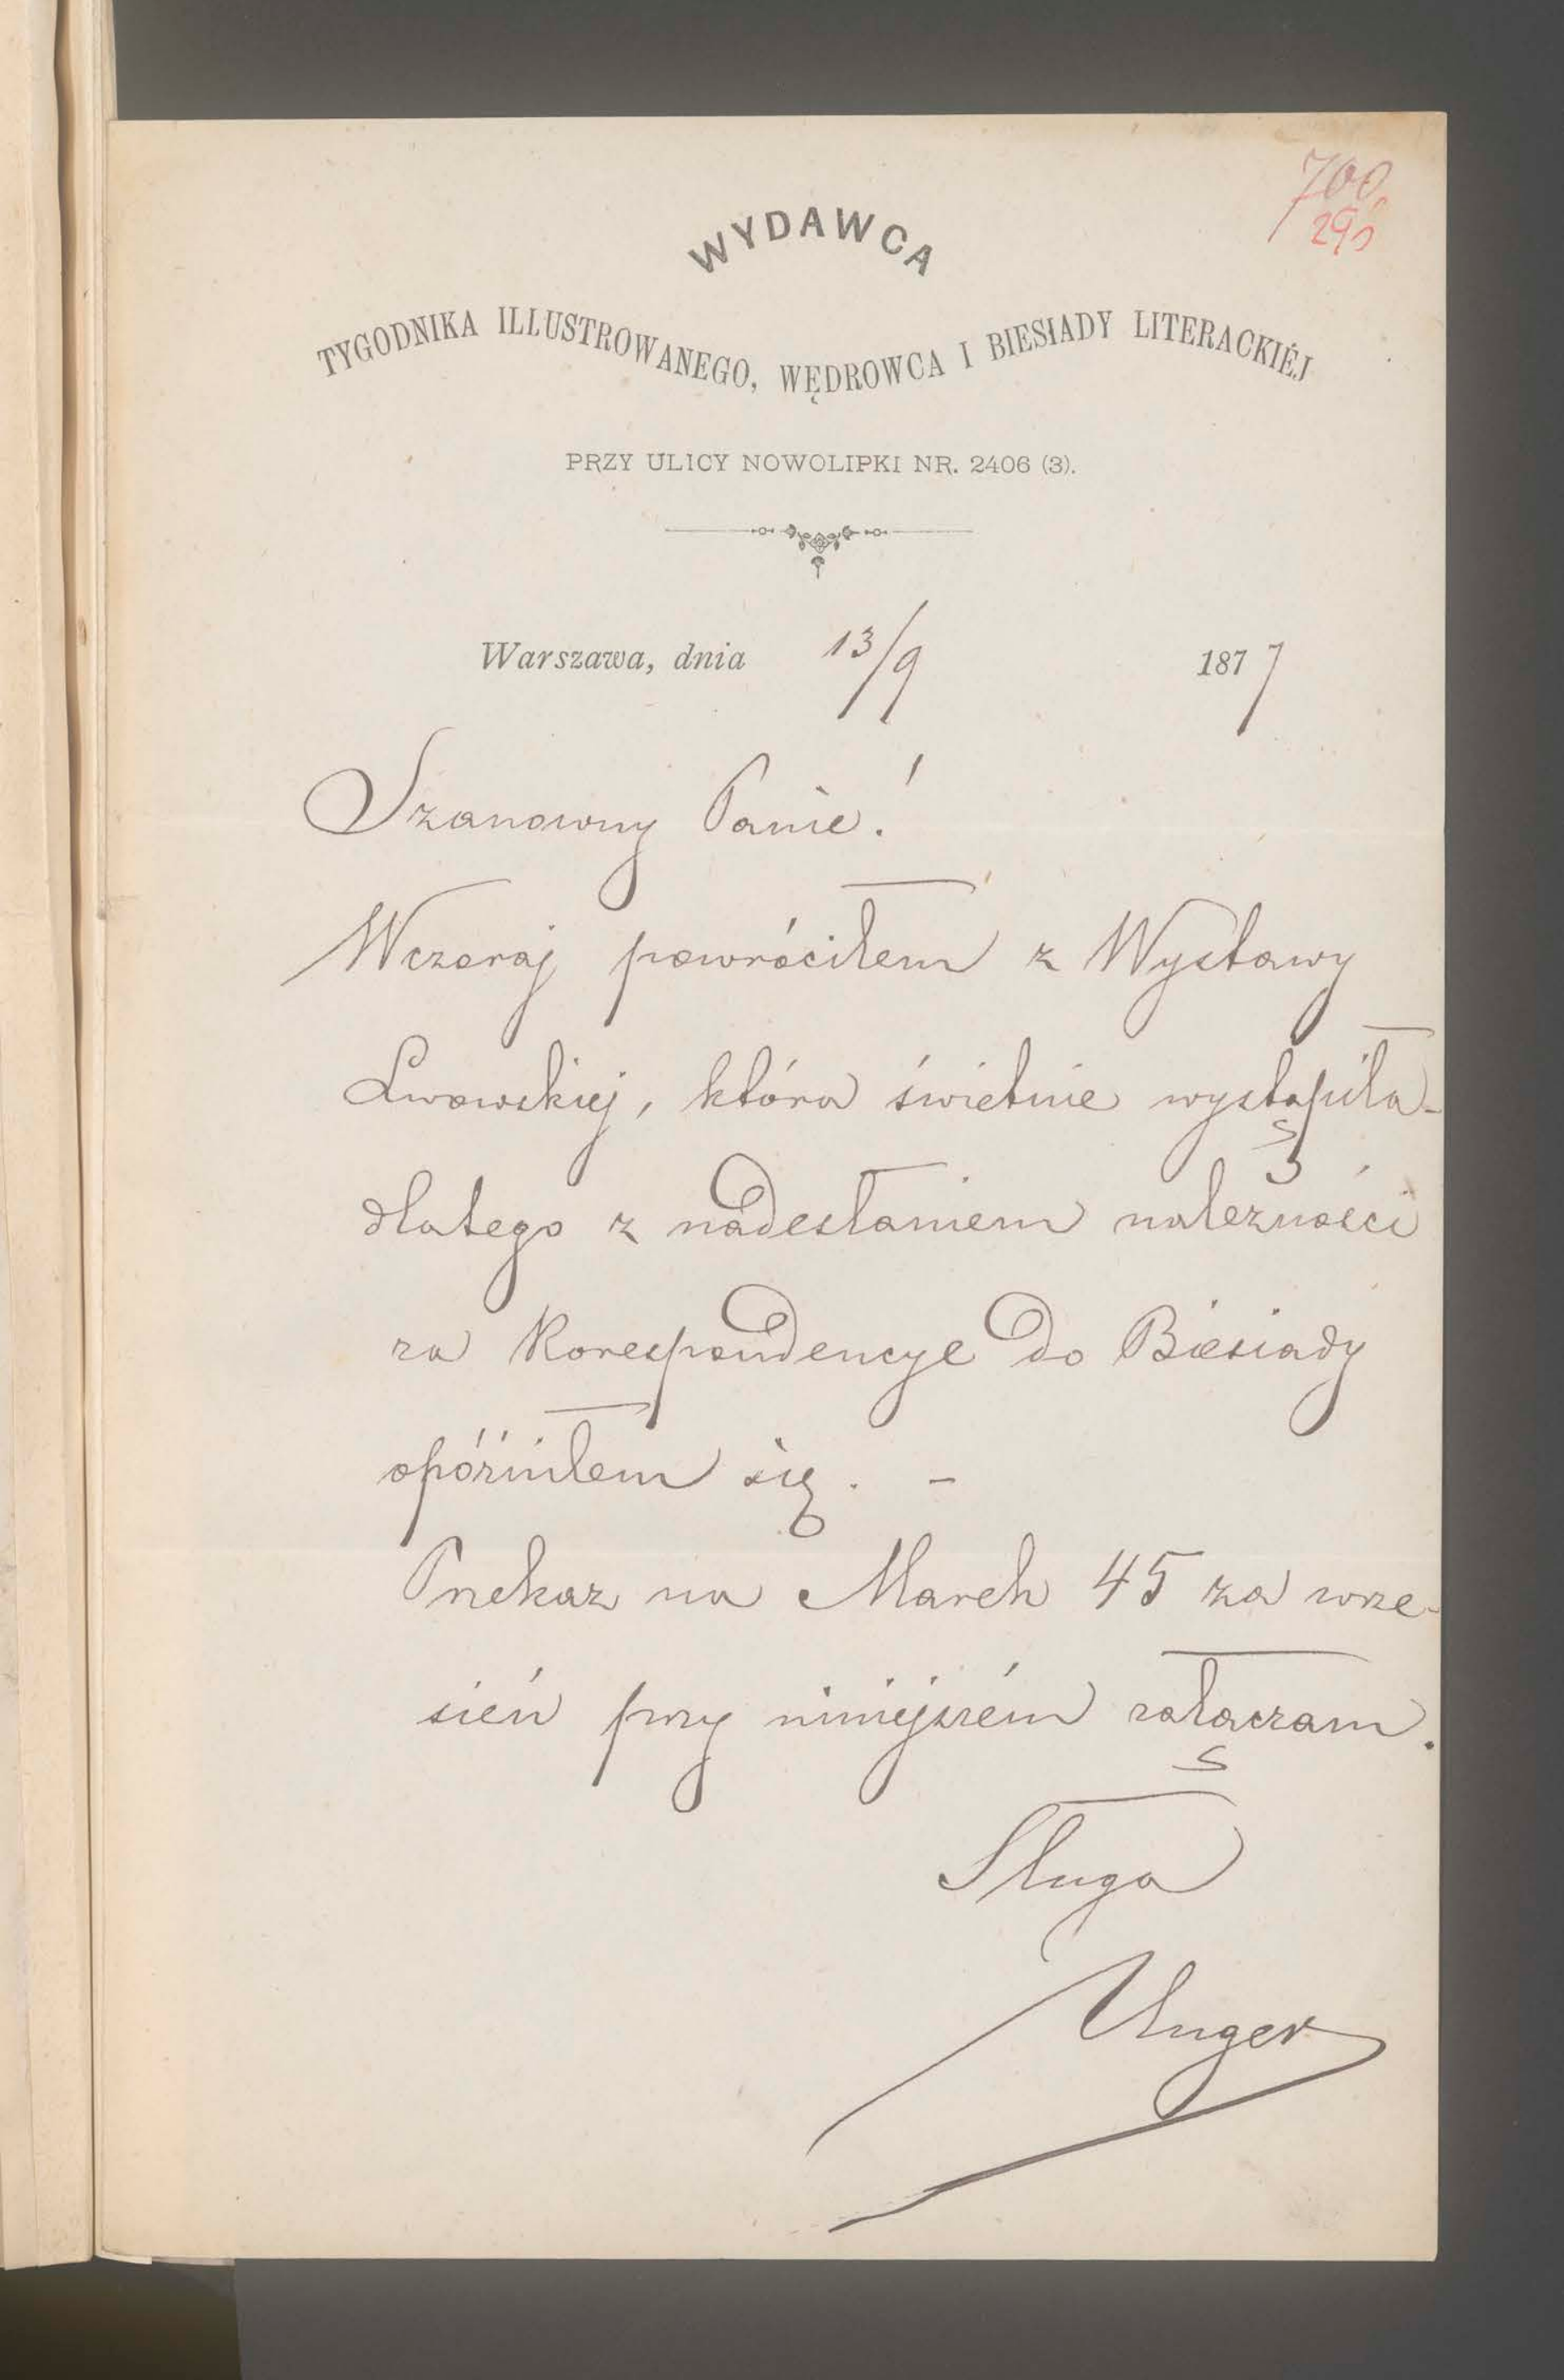 700
290
WYDAWCA
TYGODNIKA ILLUSTROWANEGO, WĘDROWCA I BIESIADY LITERACKIÉJ
PRZY ULICY NOWOLIPKI NR. 2406 (3).
Warszawa, dnia 13/9 1877
Szanowny Panie!
Wczoraj powróciłem z Wystawy
Lwowskiej, która świetnie wystąpiła -
dlatego z nadesłaniem należności
za Korespondencye do Biesiady
opóźniłem się. -
Przekaz na Marek 45 za wrze-
sień przy niniejszém załączam.
Sługa
Unger